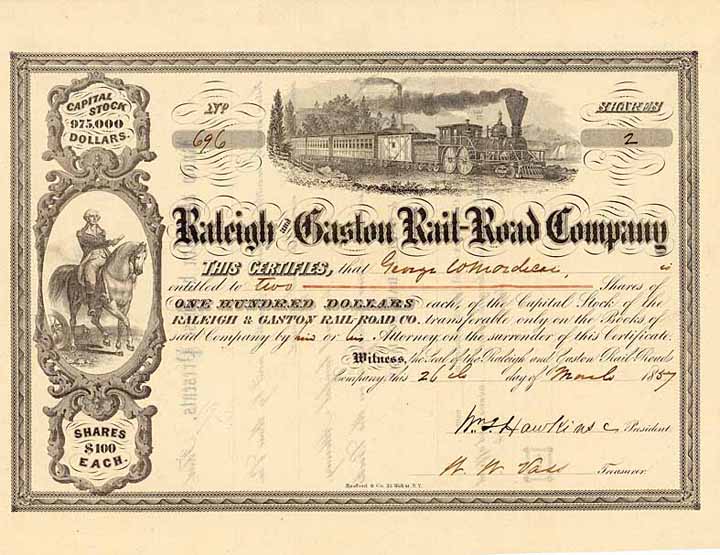 CAPITAL
STOCK
975,000
DOLLARS.
696
2
Raleigh and Gaston Rail-Road Company
THIS CERTIFIES, that George W Mordecai, is
entitled to two Shares of
ONE HUNDRED DOLLARS each, of the Capital Stock of the
RALEIGH & GASTON RAIL-ROAD CO. transferable only on the Books of
said Company by him or his Attorney on the surrender of this Certificate.
Witness, the Seal of the Raleigh and Gaston Rail-Road
Company, this 26th day of March 1857
Wm J Hawkins President
W. W. Vass Treasurer.
SHARES
$100
EACH.